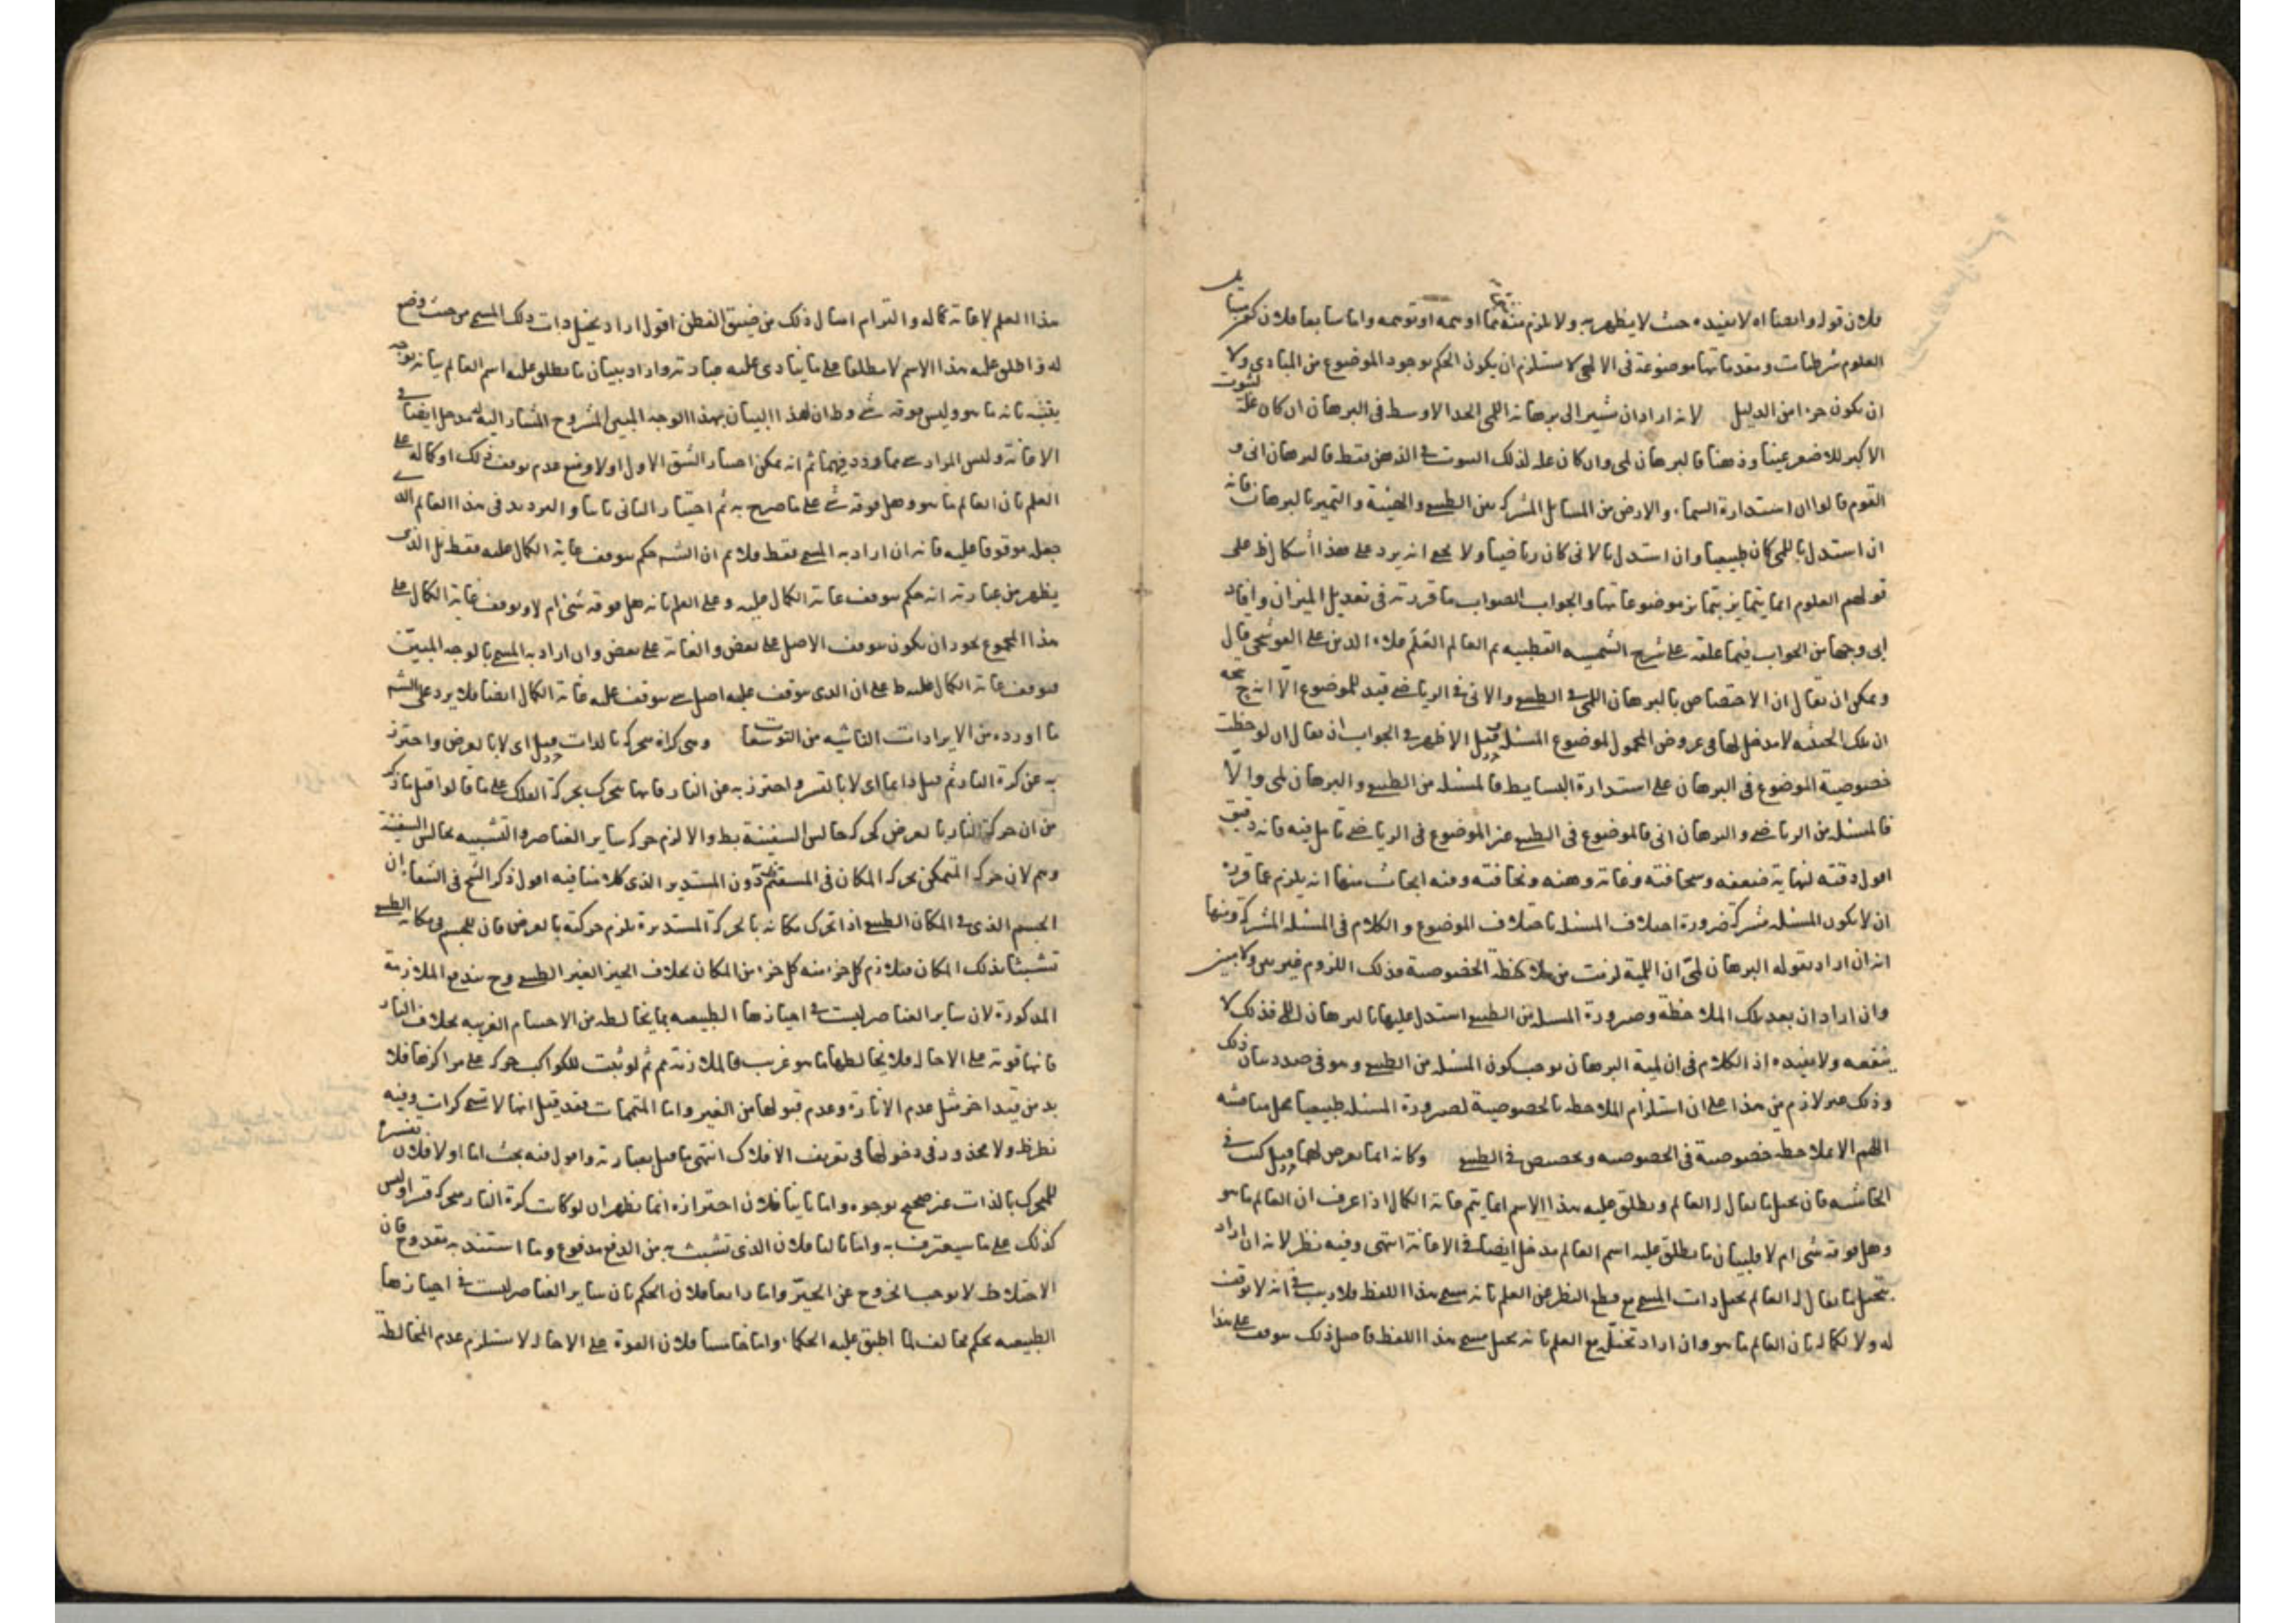 فلان قوله وايضا اه لا يفيده حيث لا يظهر به ولا يلزم منه
العلوم شرطيات ومقدماتها موضوعة فى الالهى لا يستلزم ان يكون الحكم بوجود الموضوع من المبادى ولا
ان يكون جزءا من الدليل لانه اراد ان يشير الى برهانه اللمى الحد الاوسط فى البرهان ان كان علة لثبوت
الاكبر للاصغر عينا وذهنا فالبرهان لمى وان كان علة لذلك الثبوت فى الذهن فقط فالبرهان انى و
القوم قالوا ان استدارة السماء والارض من المسائل المشتركة بين الطبيعى والهيئة والتميز بالبرهان فانه
ان استدل باللمى كان طبيعيا وان استدل بالانى كان رياضيا ولا يخفى انه يرد على هذا اشكال ظ على
قولهم العلوم انما يتمايز بتمايز موضوعاتها والجواب الصواب ما قررته فى تعديل الميزان وافاد
ابى وجها من الجواب فيما علقه على شرح الشمسية القطبيه ثم العالم علاء الدين على القوشجى قال
ويمكن ان يقال ان الاختصاص بالبرهان اللمى فى الطبيعى والانى فى الرياضى قيد للموضوع الا انه
ان تلك الحيثية لا مدخل لها فى عروض المحمول لموضوع المسئلة قيل الاظهر فى الجواب ان يقال ان لوحظت
خصوصية الموضوع فى البرهان على استدارة البسايط فالمسئلة من الطبيعى والبرهان لمى والا
فالمسئلة من الرياضى والبرهان انى فالموضوع فى الطبيعى غير الموضوع فى الرياضى تامل فيه فانه دقيق
اقول دقته لنهاية ضعفه وسخافته وغاية وهنه ونحافته وفيه ابحاث منها انه يلزم مما قرره
ان لا يكون المسئلة مشتركة ضرورة اختلاف المسئلة باختلاف الموضوع والكلام فى المسئلة المشتركة ومنها
انه ان اراد بقوله البرهان لمى ان اللمية لزمت من ملاحظة الخصوصية فذلك اللزوم غير بين ولا مبين
وان اراد ان بعد تلك الملاحظة وصيرورة المسئلة من الطبيعى استدل عليها بالبرهان اللمى فذلك لا
ينفعه ولا يفيده اذ الكلام فى ان لمية البرهان يوجب كون المسئلة من الطبيعى وهو فى صدد بيان ذلك
وذلك غير لازم من هذا على ان استلزام الملاحظة بالخصوصية لصيرورة المسئلة طبيعيا محل مناقشه
اللهم الا بملاحظة خصوصية فى الخصوصيه وتخصيص فى الطبيعى وكانه انما تعرض لها قيل كتب فى
الحاشيه فان تخيل ما يقال له العالم ويطلق عليه هذا الاسم انما يتم غاية الكمال اذا عرف ان العالم ما هو
وهل فوقه شى ام لا فلبيان ما يطلق عليه اسم العالم مدخل ايضا فى الاعانة انتهى وفيه نظر لانه ان اراد
بتخيل ما يقال له العالم تخيل ذات المسمى مع قطع النظر عن العلم بانه مسمى هذا اللفظ فلا ريب فى انه لا توقف
له ولا لكماله بان العالم ما هو وان اراد تخيله مع العلم بانه تخيل مسمى هذا اللفظ فاصل ذلك يتوقف على هذا
هذا العلم لا غاية كماله والتزام امثال ذلك من ضيق الفطن اقول اراد تخيل ذات ذلك المسمى من حيث وضع
له واطلق عليه هذا الاسم لا مطلقا على ما ينادى عليه عبارته واراد ببيان ما يطلق عليه اسم العالم بيانه بوجه
يفيد بانه ما هو وليس فوقه شى وظ ان لهذا البيان بهذا الوجه المبين المشروح المشار اليه مدخل ايضا فى
الاعانة وليس المراد ثم انه يمكن اختيار الشق الاول اولا ومنع عدم توقف ذلك او كماله على
العلم بان العالم ما هو وهل فوقه شى على ما صرح به ثم اختيار الثانى ثانيا والترديد فى هذا العالم الذى
جعل موقوفا عليه فانه ان اراد به المسمى فقط فلا نم ان الش حكم بتوقف غاية الكمال عليه فقط بل الذى
يظهر من عبارته انه حكم بتوقف غاية الكمال عليه وعلى العلم بانه هل فوقه شى ام لا وتوقف غاية الكمال على
هذا المجموع يجوز ان يكون بتوقف الاصل على بعض والغاية على بعض وان اراد به المسمى بالوجه المبين
فتوقف غاية الكمال عليه ظ على ان الذى يتوقف عليه اصل شى يتوقف عليه غاية الكمال ايضا فلا يرد على الش
ما اورده من الايرادات الناشيه من وهى كرة متحركة بالذات قيل اى لا بالعرض واحترز
به عن كرة النار ثم قيل دائما اى لا بالقسر واحترز به عن النار فانها تتحرك بحركة الفلك على ما قالوا قيل ما ذكر
من ان حركة النار بالعرض كحركة جالس السفينة بط والا لزم حركة ساير العناصر والتشبيه بجالس السفينة
وهم لان حركة المتمكن بحركة المكان فى المستقيم دون المستدير الذى كلامنا فيه اقول ذكر الشيخ فى الشفاء ان
الجسم الذى فى المكان الطبيعى اذا تحرك مكانه بالحركة المستديرة يلزم حركته بالعرض فان للجسم فى مكانه الطبيعى
تشبثا بذلك المكان فيلازم كل جزء منه كل جزء من المكان بخلاف الحيز الغير الطبيعى وح يندفع الملازمة
المذكورة لان ساير العناصر ليست فى احيازها الطبيعيه بما يخالطه من الاجسام الغريبه بخلاف النار
فانها قوية على الاحالة فلا يخالطها ما هو غريب فالملازمة مم ثم لو ثبت للكواكب حركة على مراكزها فلا
بد من قيد اخر مثل عدم الانارة وعدم قبولها من الغير واما المتممات فقد قيل انها لا تسمى كرات وفيه
نظر ظ ولا محذور فى دخولها فى تعريف الافلاك انتهى ما قيل بعبارته واقول فيه بحث اما اولا فلان تفسيره
للمتحرك بالذات غير صحيح بوجوه واما ثانيا فلان احترازه انما يظهر ان لو كانت كرة النار متحركة قسرا وليس
كذلك على ما سيعترف به واما ثالثا فلان الذى تشبث به من الدفع مدفوع وما استند به مقدوح فان
الاختلاط لا يوجب الخروج عن الحيز واما رابعا فلان الحكم بان ساير العناصر ليست فى احيازها
الطبيعيه حكم مخالف لما اطبق عليه الحكماء واما خامسا فلان القوة على الاحالة لا يستلزم عدم المخالطة